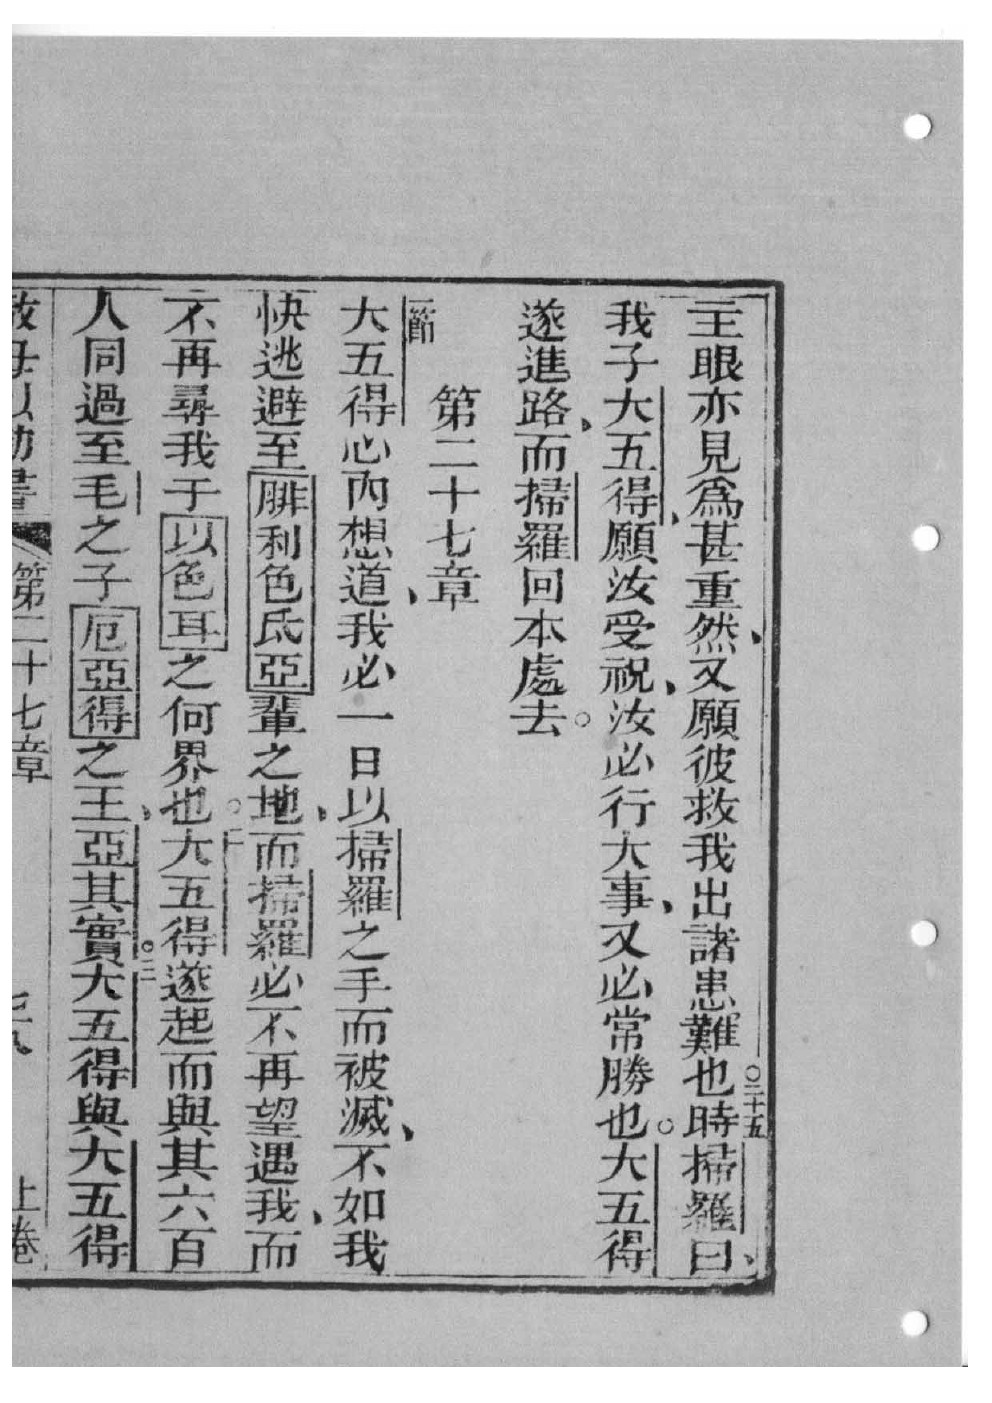 主眼亦見爲甚重然、又願彼救我出諸患難也○二十五時掃羅曰、
我子大五得、願汝受祝、汝必行大事、又必常勝也○大五得
遂進路、而掃羅回本處去○
第二十七章
一節大五得心內想道、我必一日以掃羅之手而被滅、不如我
快逃避至腓利色氐亞輩之地、而掃羅必不再望遇我、而
不再尋我于以色耳之何界也○二大五得遂起而與其六百
人同過至毛之子厄亞得之王、亞其實○三大五得與大五得
第二十七章 上卷